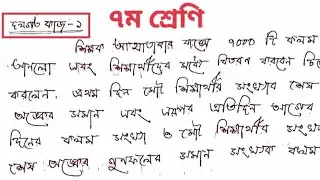 দলগত কাজ - ১
৭ম শ্রেণি
শিক্ষক আত্মতাবার বাক্সে ৭০০০ টি কলম
আনলো এবং শিক্ষার্থীদের মধ্যে বিতরণ করবেন চি
করলেন. প্রথম দিন মোট শিক্ষার্থীর সংখ্যার শেষ
অঙ্কের সমান এবং এরপর প্রতিদিন আগের
দিনের কলম সংখ্যা ও মোট শিক্ষার্থীর সংখ্যার
শেষ অঙ্কের গুণফলের সমান সংখ্যক কলম